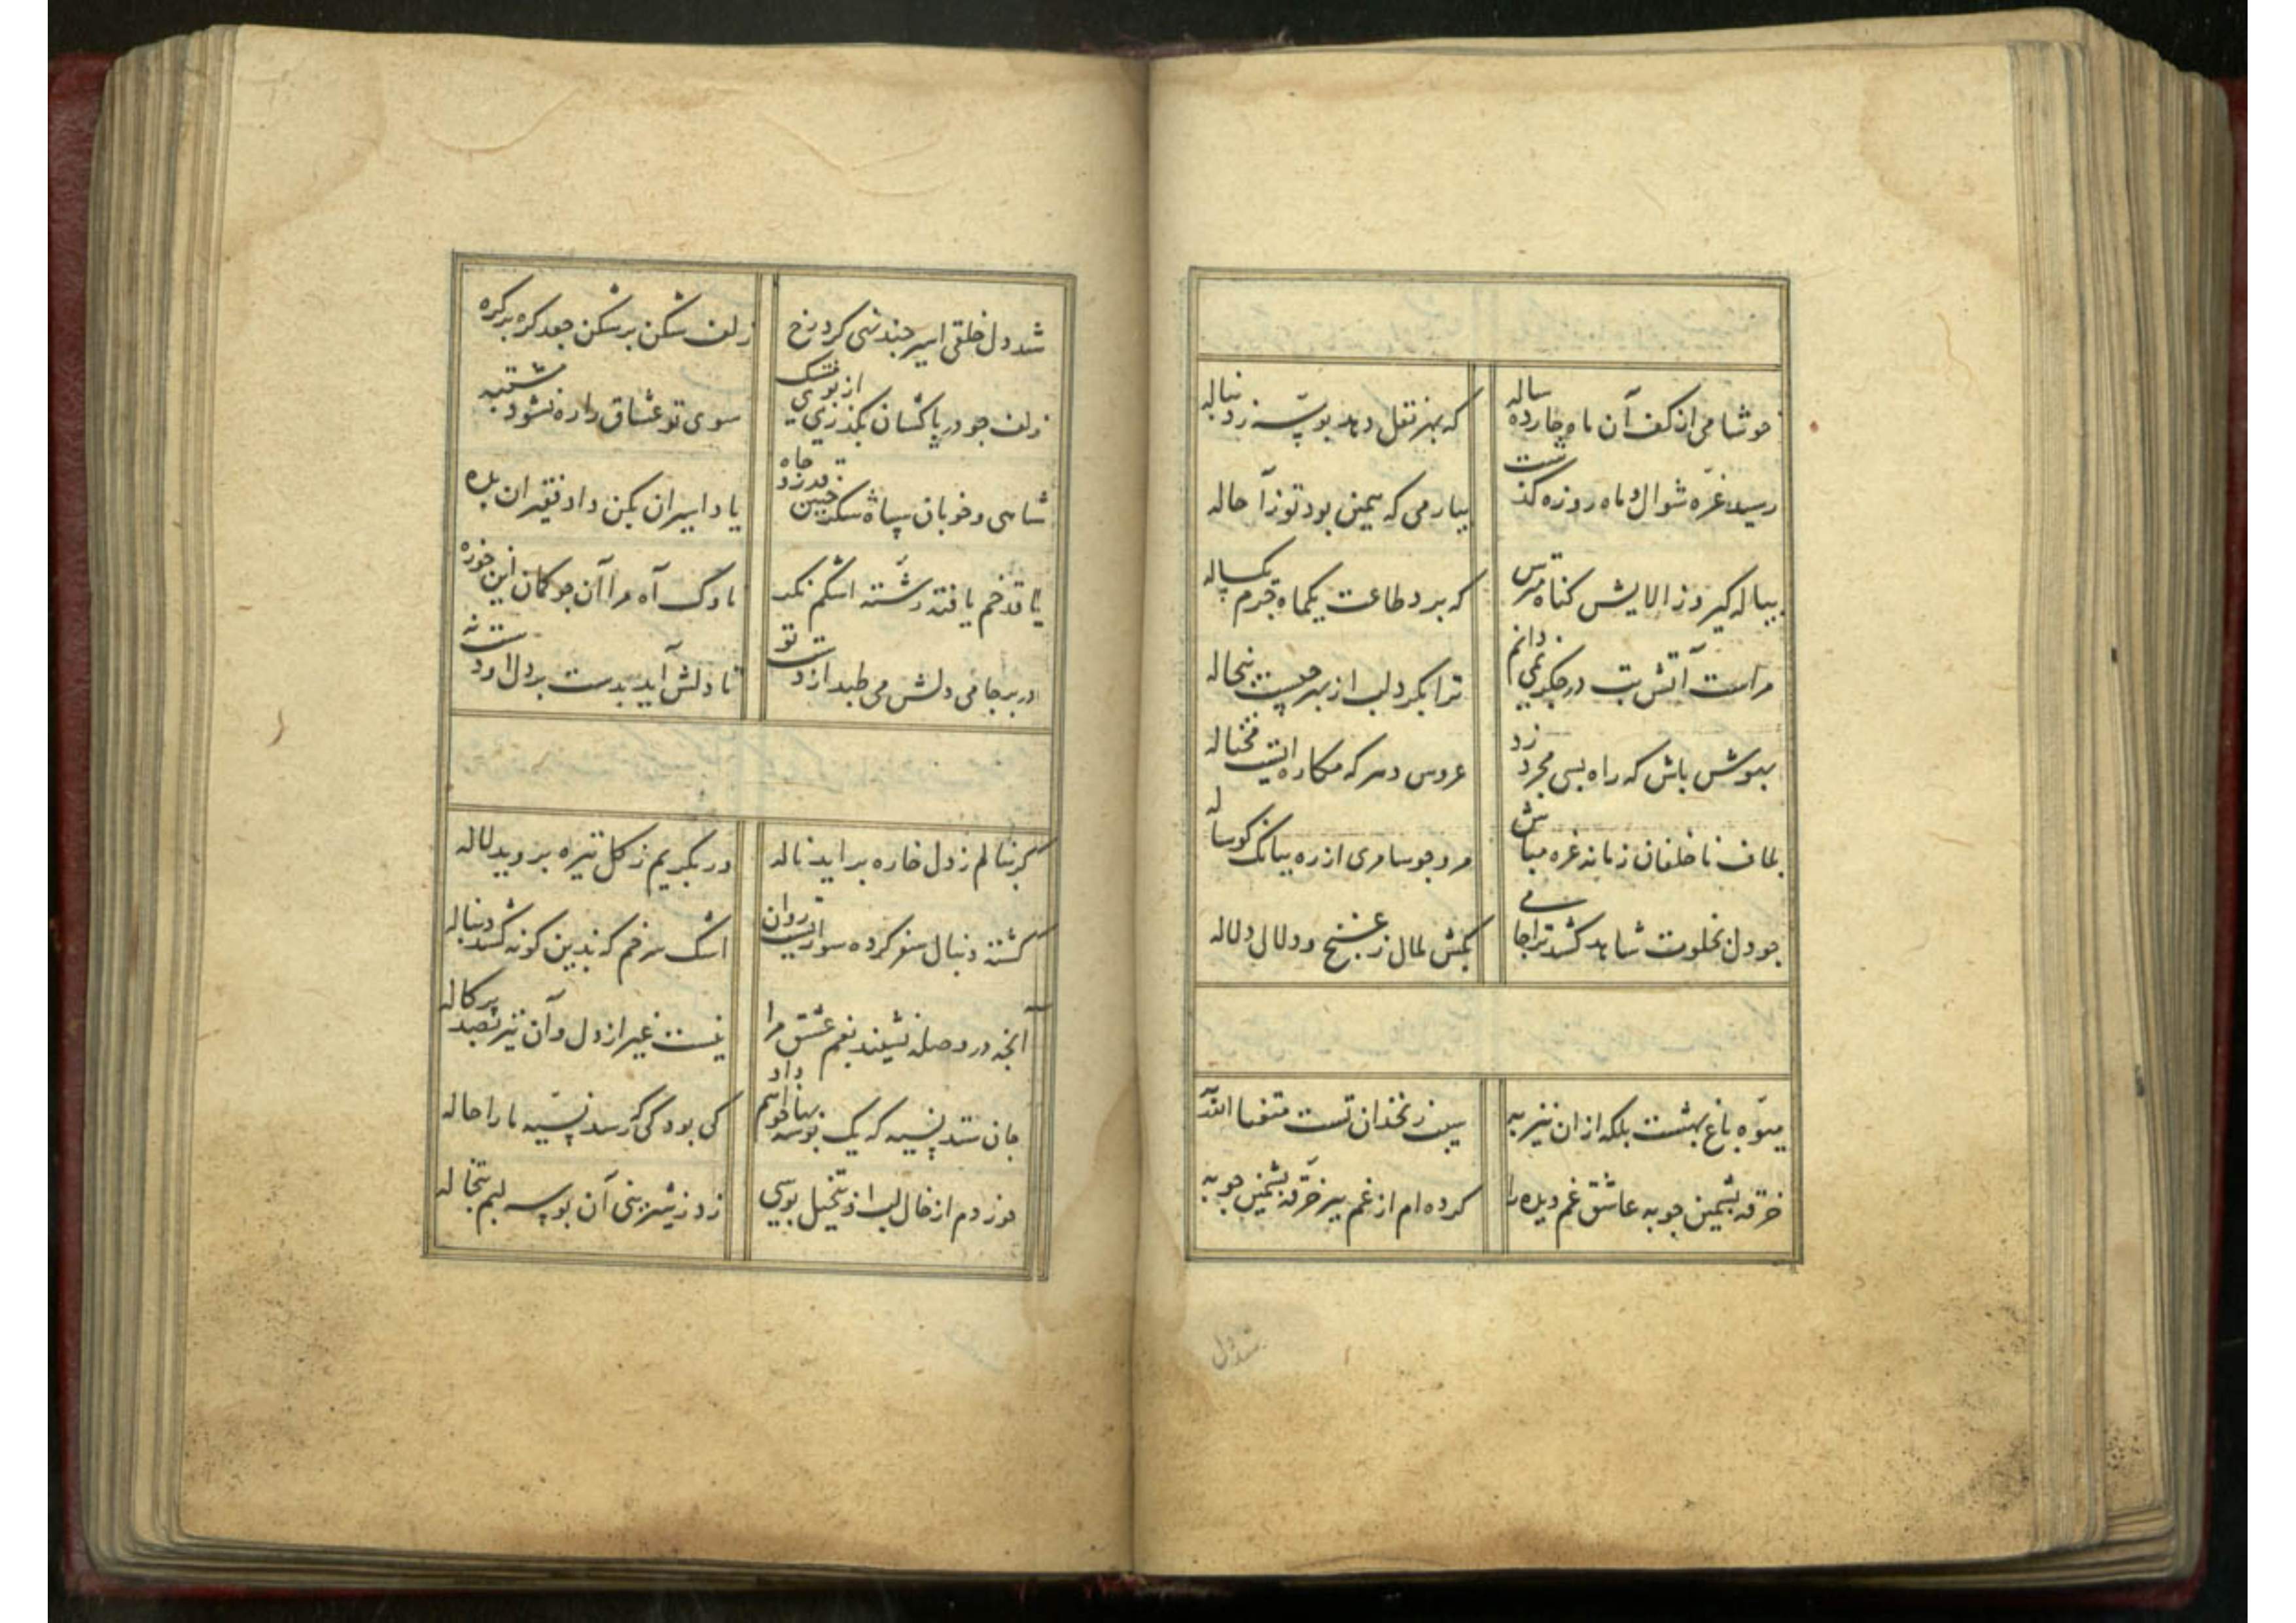 خوشا می از کف آن ماه چارده ساله
که بهر نقل دهد بوسه ز دنباله
رسید غرّه شوال و ماه روزه گذشت
بیار می که همین بود توز آ حاله
پیاله گیر و ز الایش گناه مترس
که برد طاعت یکماه جرم یکساله
مراست آتش تب در جگر نمی دانم
ترا بگرد لب از بهر چیست تبخاله
بهوش باش که راه بسی مجرد زد
عروس دهر که مکاره ایست محتاله
بلاف ناخلفان زمانه غره مباش
مرو چو سامری از ره ببانک کوساله
چو دل بخلوت شاهد کشد ترا جامی
بکش بمال ز غنج و دلال دلاله
میوه باغ بهشت بلکه از ان نیز به
سیب زنخدان تست متعنا الله به
خرقه پشمین چو به عاشق غم دیده را
کرده ام از غم بپر خرقه پشمین چو به
شد دل
شد دل خلقی اسیر چند نهی کرد رخ
زلف شکن بر شکن جعد کره بر کره
زلف چو در پا کشان بگذری از بوی مشک
سوی تو عشاق را ره نشود مشتبه
شاهی و خوبان سپاه شکر چنین قدر و جاه
یاد اسیران بکن داد فقیران بده
با قد خم یافته رشته اشکم نکر
ناوک آه مرا آن چو کمان این چو زه
در بر جامی دلش می طپد از دست تو
تا دلش آید بدست بر دل او دست نه
کر بنالم ز دل خاره براید ناله
ور بگریم ز کل تیره بروید لاله
کشته دنبال سفر کرده سواریست روان
اشک سرخم که بدین کونه کشد دنباله
آنچه در وصله نشیند بغم عشق مرا
نیست غیر از دل و آن نیز بصد پرکاله
جان ستد نسیه که یک بوسه بها خواهم داد
کی بود کی که رسد نسیه ما را حاله
چون زدم از خال لب او بتخیل بوسی
زد ز شیرینی آن بوسه لبم تبخاله